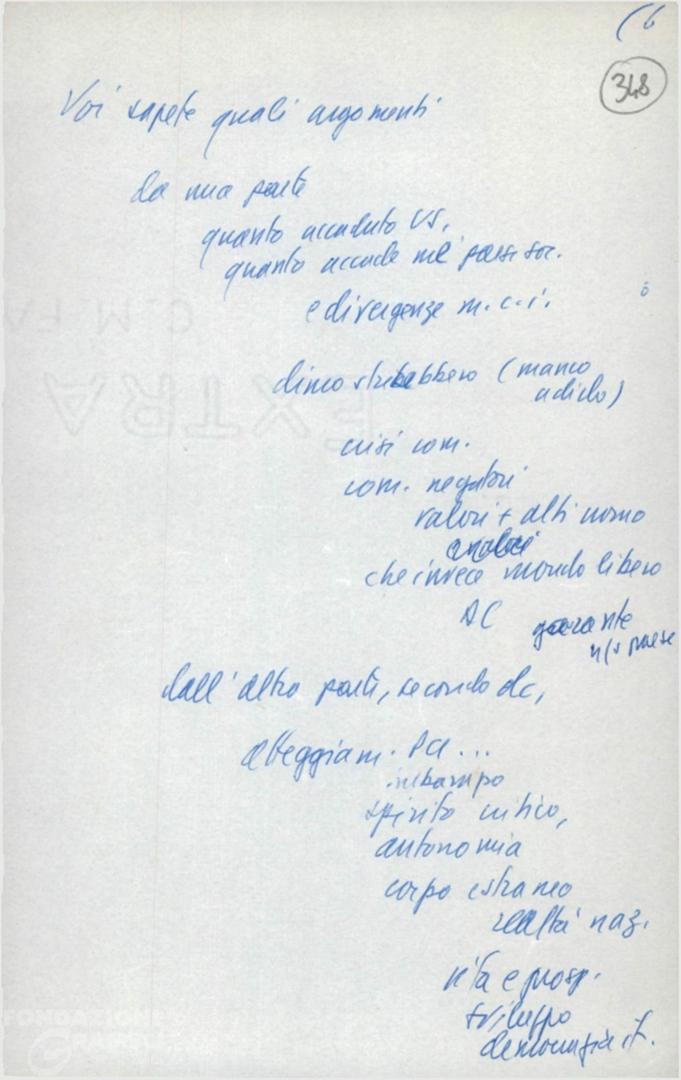 (6
348
Voi sapete quali argomenti
da una parte
quanto accaduto US,
quanto accade nel paesi soc.
e divergenze m.c.i.
dimostrerebbero (manco
a dirlo)
crisi com.
com. negatori
valori + alti uomo
che invece mondo libero
DC garante
n/s paese
dall'altra parte, secondo dc,
atteggiam. PCI ...
spirito critico,
autonomia
corpo estraneo
realtà naz.
vita e prosp.
sviluppo
democrazia it.
EXTRA
FONDAZIONE
GRAMSCI